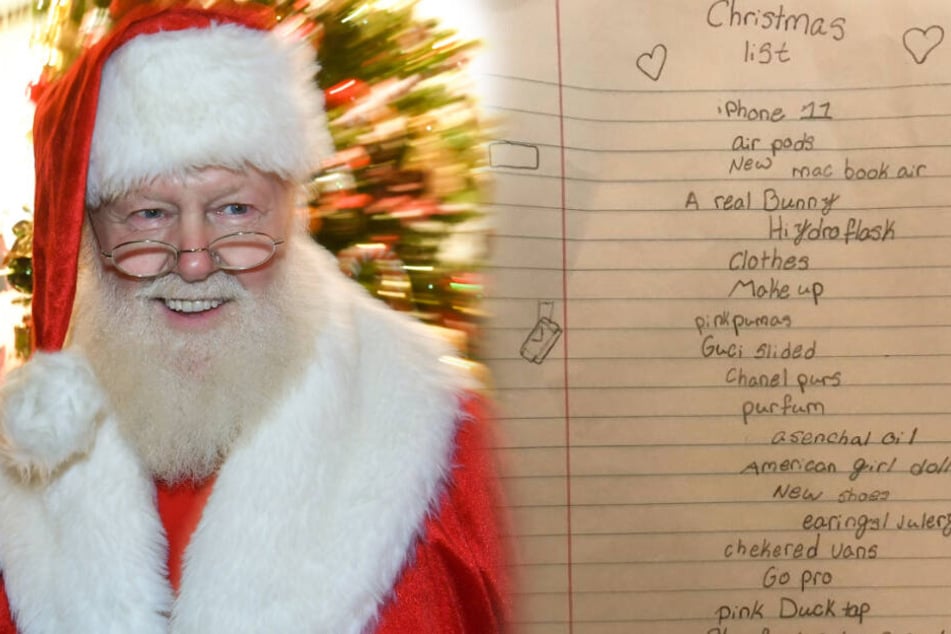 Christmas
list
iPhone 11
air pods
New mac book air
A real Bunny
Hiydroflask
Clothes
Make up
pink pumas
Guci slided
Chanel purs
purfum
asenchal oil
American girl doll
New shoes
earings/julery
chekered vans
Go pro
pink Duck tap